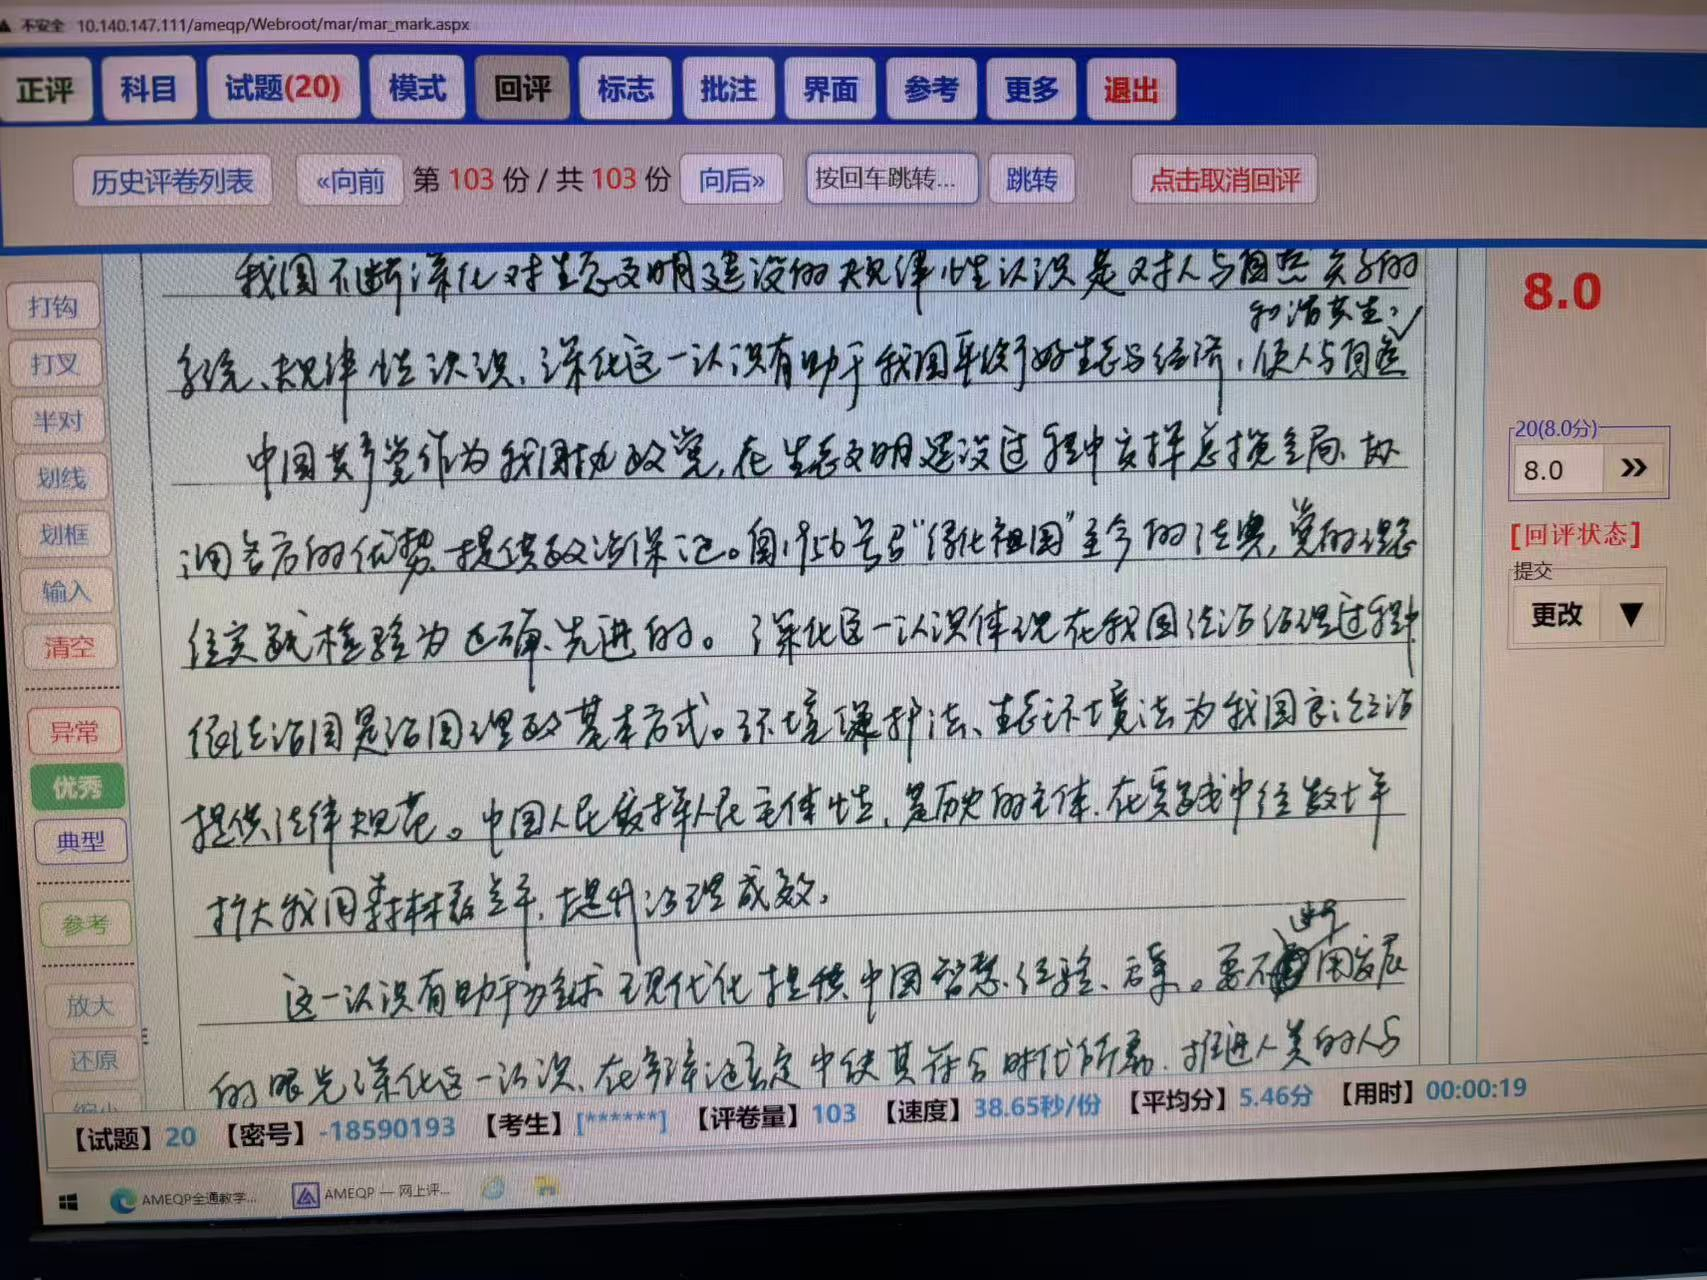 不安全 10.140.147.111/ameqp/Webroot/mar/mar_mark.aspx
正评 科目 试题(20) 模式 回评 标志 批注 界面 参考 更多 退出
历史评卷列表 «向前 第 103 份 / 共 103 份 向后» 按回车跳转... 跳转 点击取消回评
打钩
打叉
半对
划线
划框
输入
清空
异常
优秀
典型
参考
放大
还原
缩小
我国不断深化对生态文明建设的规律性认识是对人与自然关系的
和谐共生;
系统、规律性认识,深化这一认识有助于我国平衡好生态与经济,使人与自然
中国共产党作为我国执政党,在生态文明建设过程中发挥总揽全局、协
调各方的优势,提供政治保证。自1956号召“绿化祖国”至今的法典,党的理念
经实践检验为正确、先进的。深化这一认识体现在我国法治治理过程中
依法治国是治国理政基本方式。环境保护法、生态环境法为我国良法经治
提供法律规范。中国人民发挥人民主体性,是历史的主体,在实践中经数十年
扩大我国森林覆盖率,提升治理成效。
这一认识有助于为全球现代化提供中国智慧、经验、方案。要不断用发展
的眼光深化这一认识,在 中使其符合时代所需,推进人类的人与
8.0
20(8.0分)
8.0 »
[回评状态]
提交
更改 ▼
【试题】20 【密号】-18590193 【考生】[******] 【评卷量】103 【速度】38.65秒/份 【平均分】5.46分 【用时】00:00:19
AMEQP全通教学... AMEQP — 网上评...